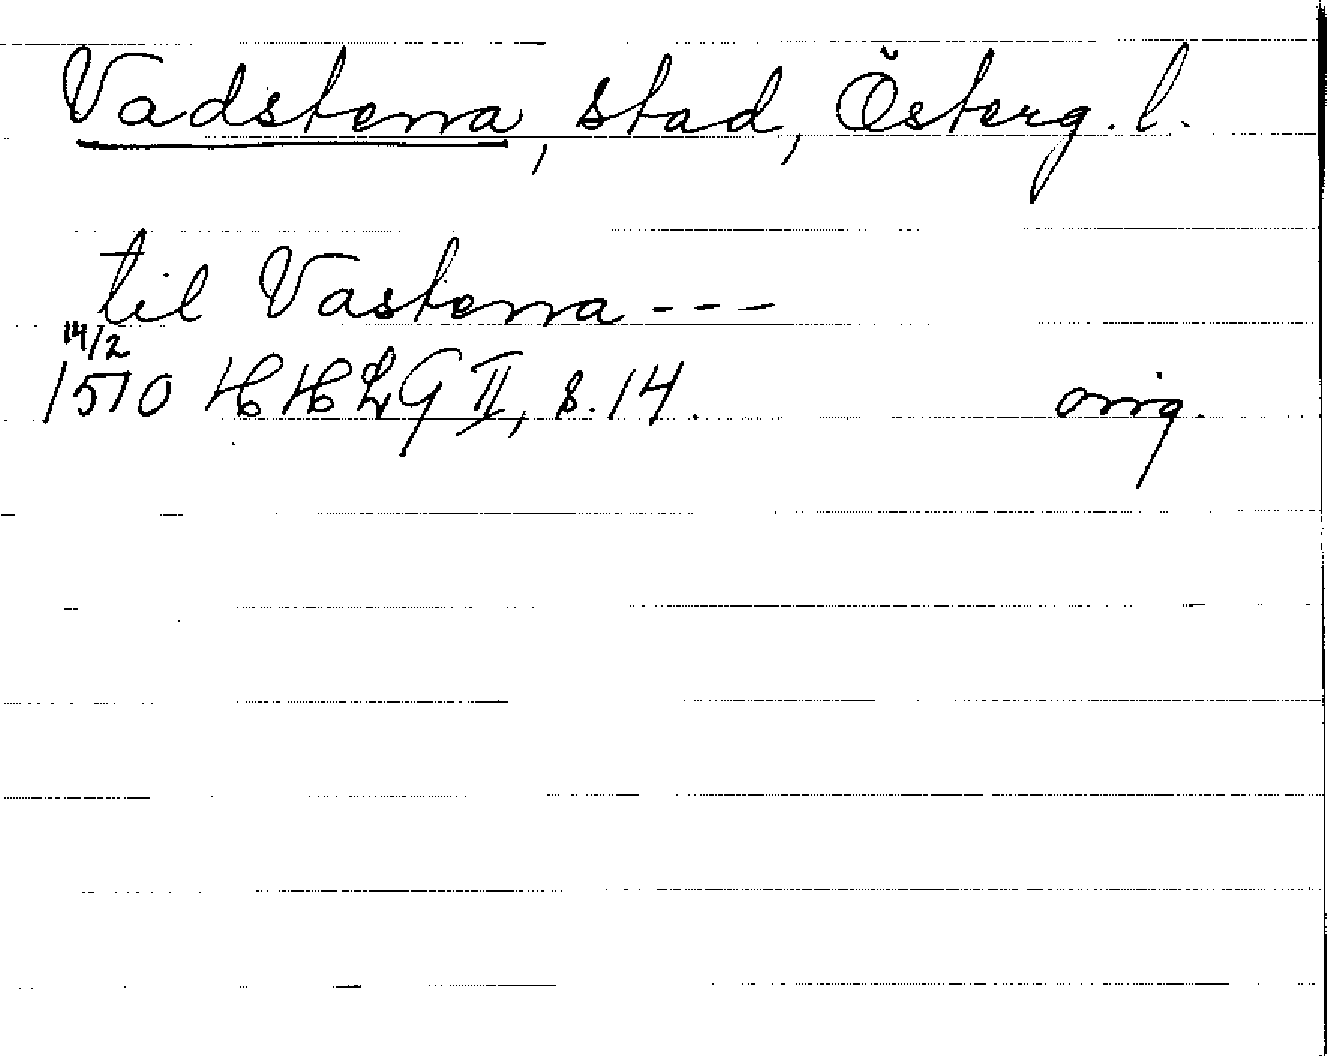 Vadstena, stad, Österg. l.
til Vastena ---
14/2
1510 HHLG II, s. 14. orig.